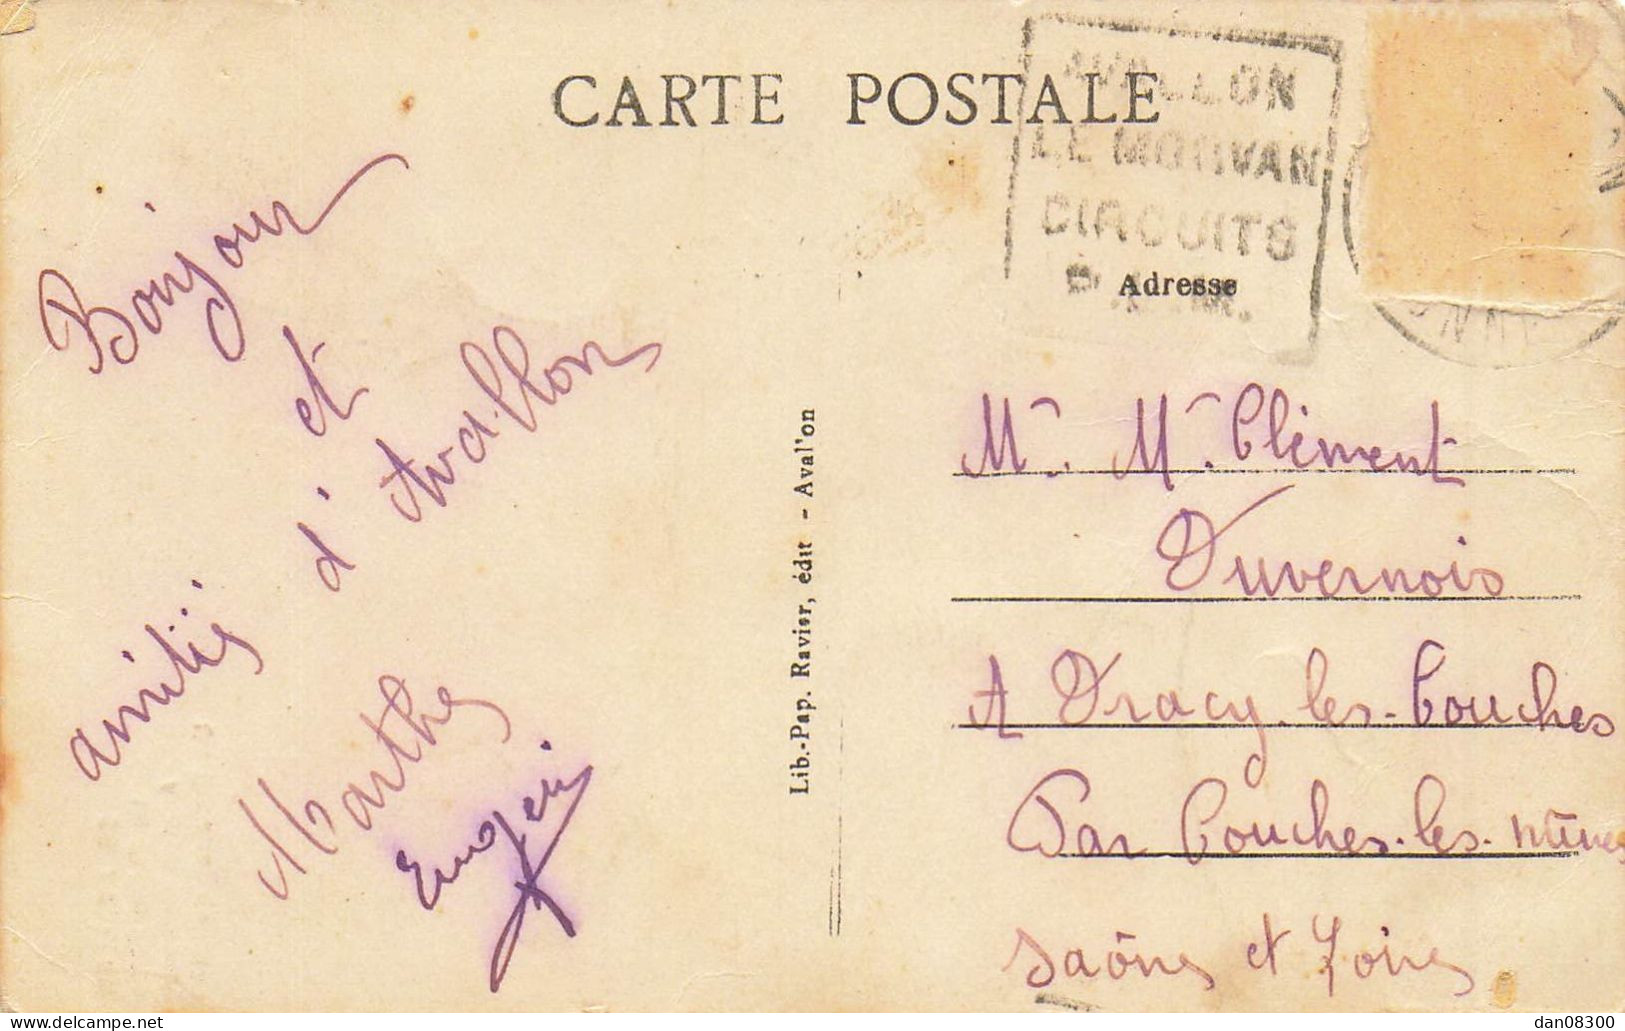 CARTE POSTALE
AVALLON
LE MORVAN
CIRCUITS
Adresse
Bonjour
et
amitiés d'Avallon
Marthe
Lib.-Pap. Ravier, édit - Aval'on
Mr. Mr. Clément
Duvernois
A Dracy-les-Couches
Par Couches-les-mines
Saône et Loire
dan08300